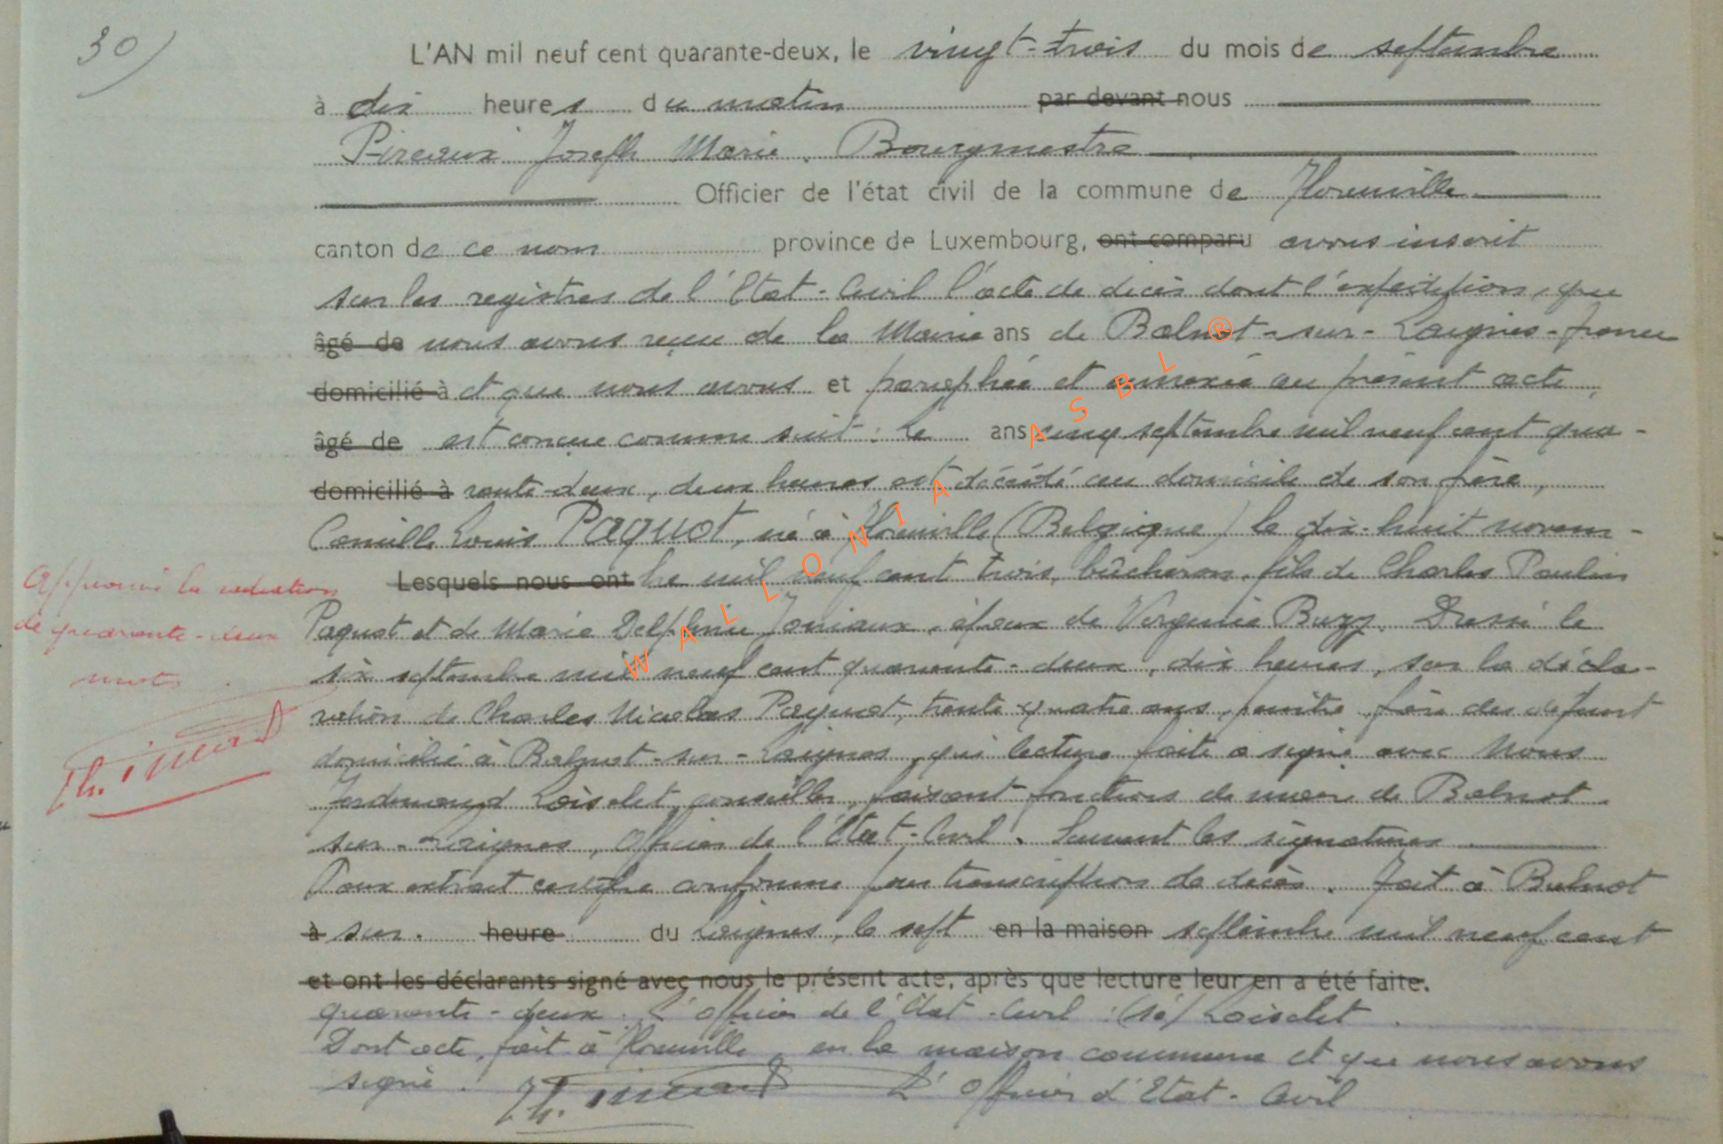 30)
L'AN mil neuf cent quarante-deux, le vingt-trois du mois de septembre
à dix heures du matin par devant nous
Pireaux Joseph Marie. Bourgmestre
Officier de l'état civil de la commune de Florenville
canton de ce nom province de Luxembourg, ont comparu avons inscrit
sur les registres de l'Etat-Civil l'acte de décès dont l'expédition, que
âgé de nous avons reçue de la Mairie ans de Balnot-sur-Laignes-France
domicilié à et que nous avons et paraphée et annexée au présent acte,
âgé de est conçue comme suit: Le ans cinq septembre mil neuf cent qua-
domicilié à rante-deux, deux heures est décédé au domicile de son frère,
Camille Louis Paquot, né à Florenville (Belgique) le dix-huit novem-
Lesquels nous ont bre mil neuf cent trois, bûcheron, fils de Charles Paulin
Paquot et de Marie Delphine Joniaux, époux de Virginie Buzz. Dressé le
six septembre mil neuf cent quarante-deux, dix heures, sur la décla-
ration de Charles Nicolas Paquot, trente quatre ans, peintre, frère du défunt
domicilié à Balnot-sur-Laignes, qui lecture faite a signé avec Nous
Ferdinand Loiselet, conseiller, faisant fonctions de maire de Balnot-
sur-Laignes, Officier de l'Etat-Civil. Suivent les signatures
Pour extrait certifié conforme pour transcription de décès. Fait à Balnot
à sur. heure du Laignes, le sept en la maison septembre mil neuf cent
et ont les déclarants signé avec nous le présent acte, après que lecture leur en a été faite.
quarante-deux. L'Officier de l'Etat-Civil: (sé) Loiselet.
Dont acte, fait à Florenville, en la maison commune et que nous avons
signé. L'Officier d'Etat-Civil
Approuvé la radiation
de quarante-deux
mots.
WALLONIA ASBL ®